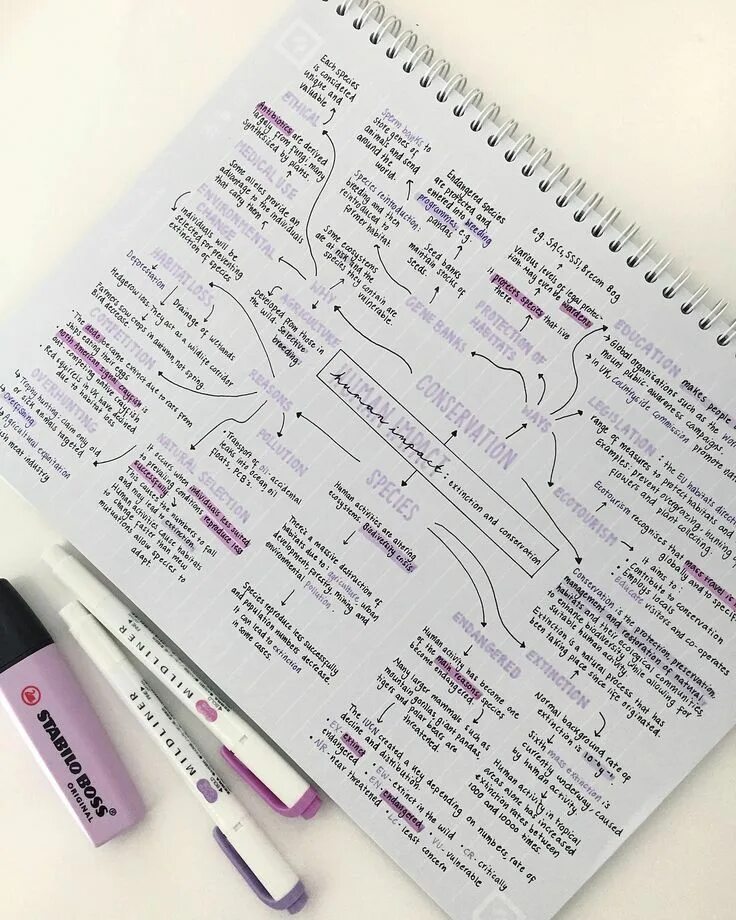 Each species
is considered
unique and
valuable
ETHICAL
Antibiotics are derived
largely from fungi; many
synthesised by plants.
MEDICAL USE
Some alleles provide an
advantage to the individuals
that carry them
ENVIRONMENTAL
CHANGE
Individuals will be
selected for preventing
extinction of species
HABITAT LOSS
Deforestation
Drainage of wetlands
Hedgerow loss, they act as a wildlife corridor
Farmers sow crops in autumn, not spring
Bird decrease
COMPETITION
The dodo became extinct due to rats from
ships eating their eggs
North American signal crayfish is
out competing native crayfish
Red squirrels in UK have decreased
due to habitat loss
OVERHUNTING
Trophy hunting: claim only old
or sick animals targeted
Overfishing
Agricultural exploitation
meat industry
Sperm banks to
store genes of
animals and send
around the
world.
Species reintroduction:
breeding and then
reintroduced to
former habitat
Some ecosystems
are at risk and the
species they contain are
vulnerable.
WHY
AGRICULTURE
Developed from those in
the wild. Selective
breeding
REASONS
Endangered species
are protected and
entered into breeding
programmes e.g.
pandas
Seed banks
maintain stocks of
seeds
GENE BANKS
e.g. SACs, SSSI, Brecon Beg
Various levels of legal protec-
tion. May even be wardens
It protects species that live
there
PROTECTION OF
HABITATS
EDUCATION makes people
Global organisations such as the Wor
mount public awareness campaigns.
in UK, Countryside Commission promote nat
WAYS
LEGISLATION: the EU habitats directi
range of measures to protect habitats and
Examples: prevent overgrazing, hunting,
flowers and plant collecting.
ECOTOURISM
Ecotourism recognises that mass travel is
globally and to specif
it aims to:
Contribute to conservation
Employ locals
Educate visitors and co-operates
CONSERVATION
HUMAN IMPACT
human impact: extinction and conservation
SPECIES
POLLUTION
Transport of oil- accidental
leaks into ocean oil
floats, PCB's.
NATURAL SELECTION
It occurs when individuals less suited
to prevailing conditions reproduce less
successfully
This causes the numbers to fall
and may lead to extinction.
Human activities cause habitats
to change faster than new
mutations allow species to
adapt.
Human activities are altering
ecosystems. Biodiversity crisis
There's a massive destruction of
habitats due to: agriculture, urban
development, forestry, mining and
environmental pollution.
Species reproduce less successfully
and population numbers decrease.
It can lead to extinction
in some cases.
Conservation is the protection, preservation,
management and restoration of natural
habitats and their ecological communities,
to enhance biodiversity while allowing for
suitable human activity.
Extinction is a natural process, that has
been taking place since life originated.
ENDANGERED
Human activity has become one
of the main reasons species
become endangered.
Many larger mammals such as
mountain gorillas, giant pandas,
tigers and polar bears are
threatened.
The IUCN created a key depending on numbers, rate of
decline and distribution.
EX- extinct
EW- extinct in the wild
CR- critically
endangered
EN- endangered
VU- vulnerable
NR- near threatened
LC- least
concern
EXTINCTION
Normal background rate of
extinction is
Sixth mass extinction is
currently underway, caused
by human activity.
Human activity in tropical
areas alone has increased
extinction rates between
1000 and 10000 times.
STABILO BOSS
ORIGINAL
MILDLINER
MILDLINER